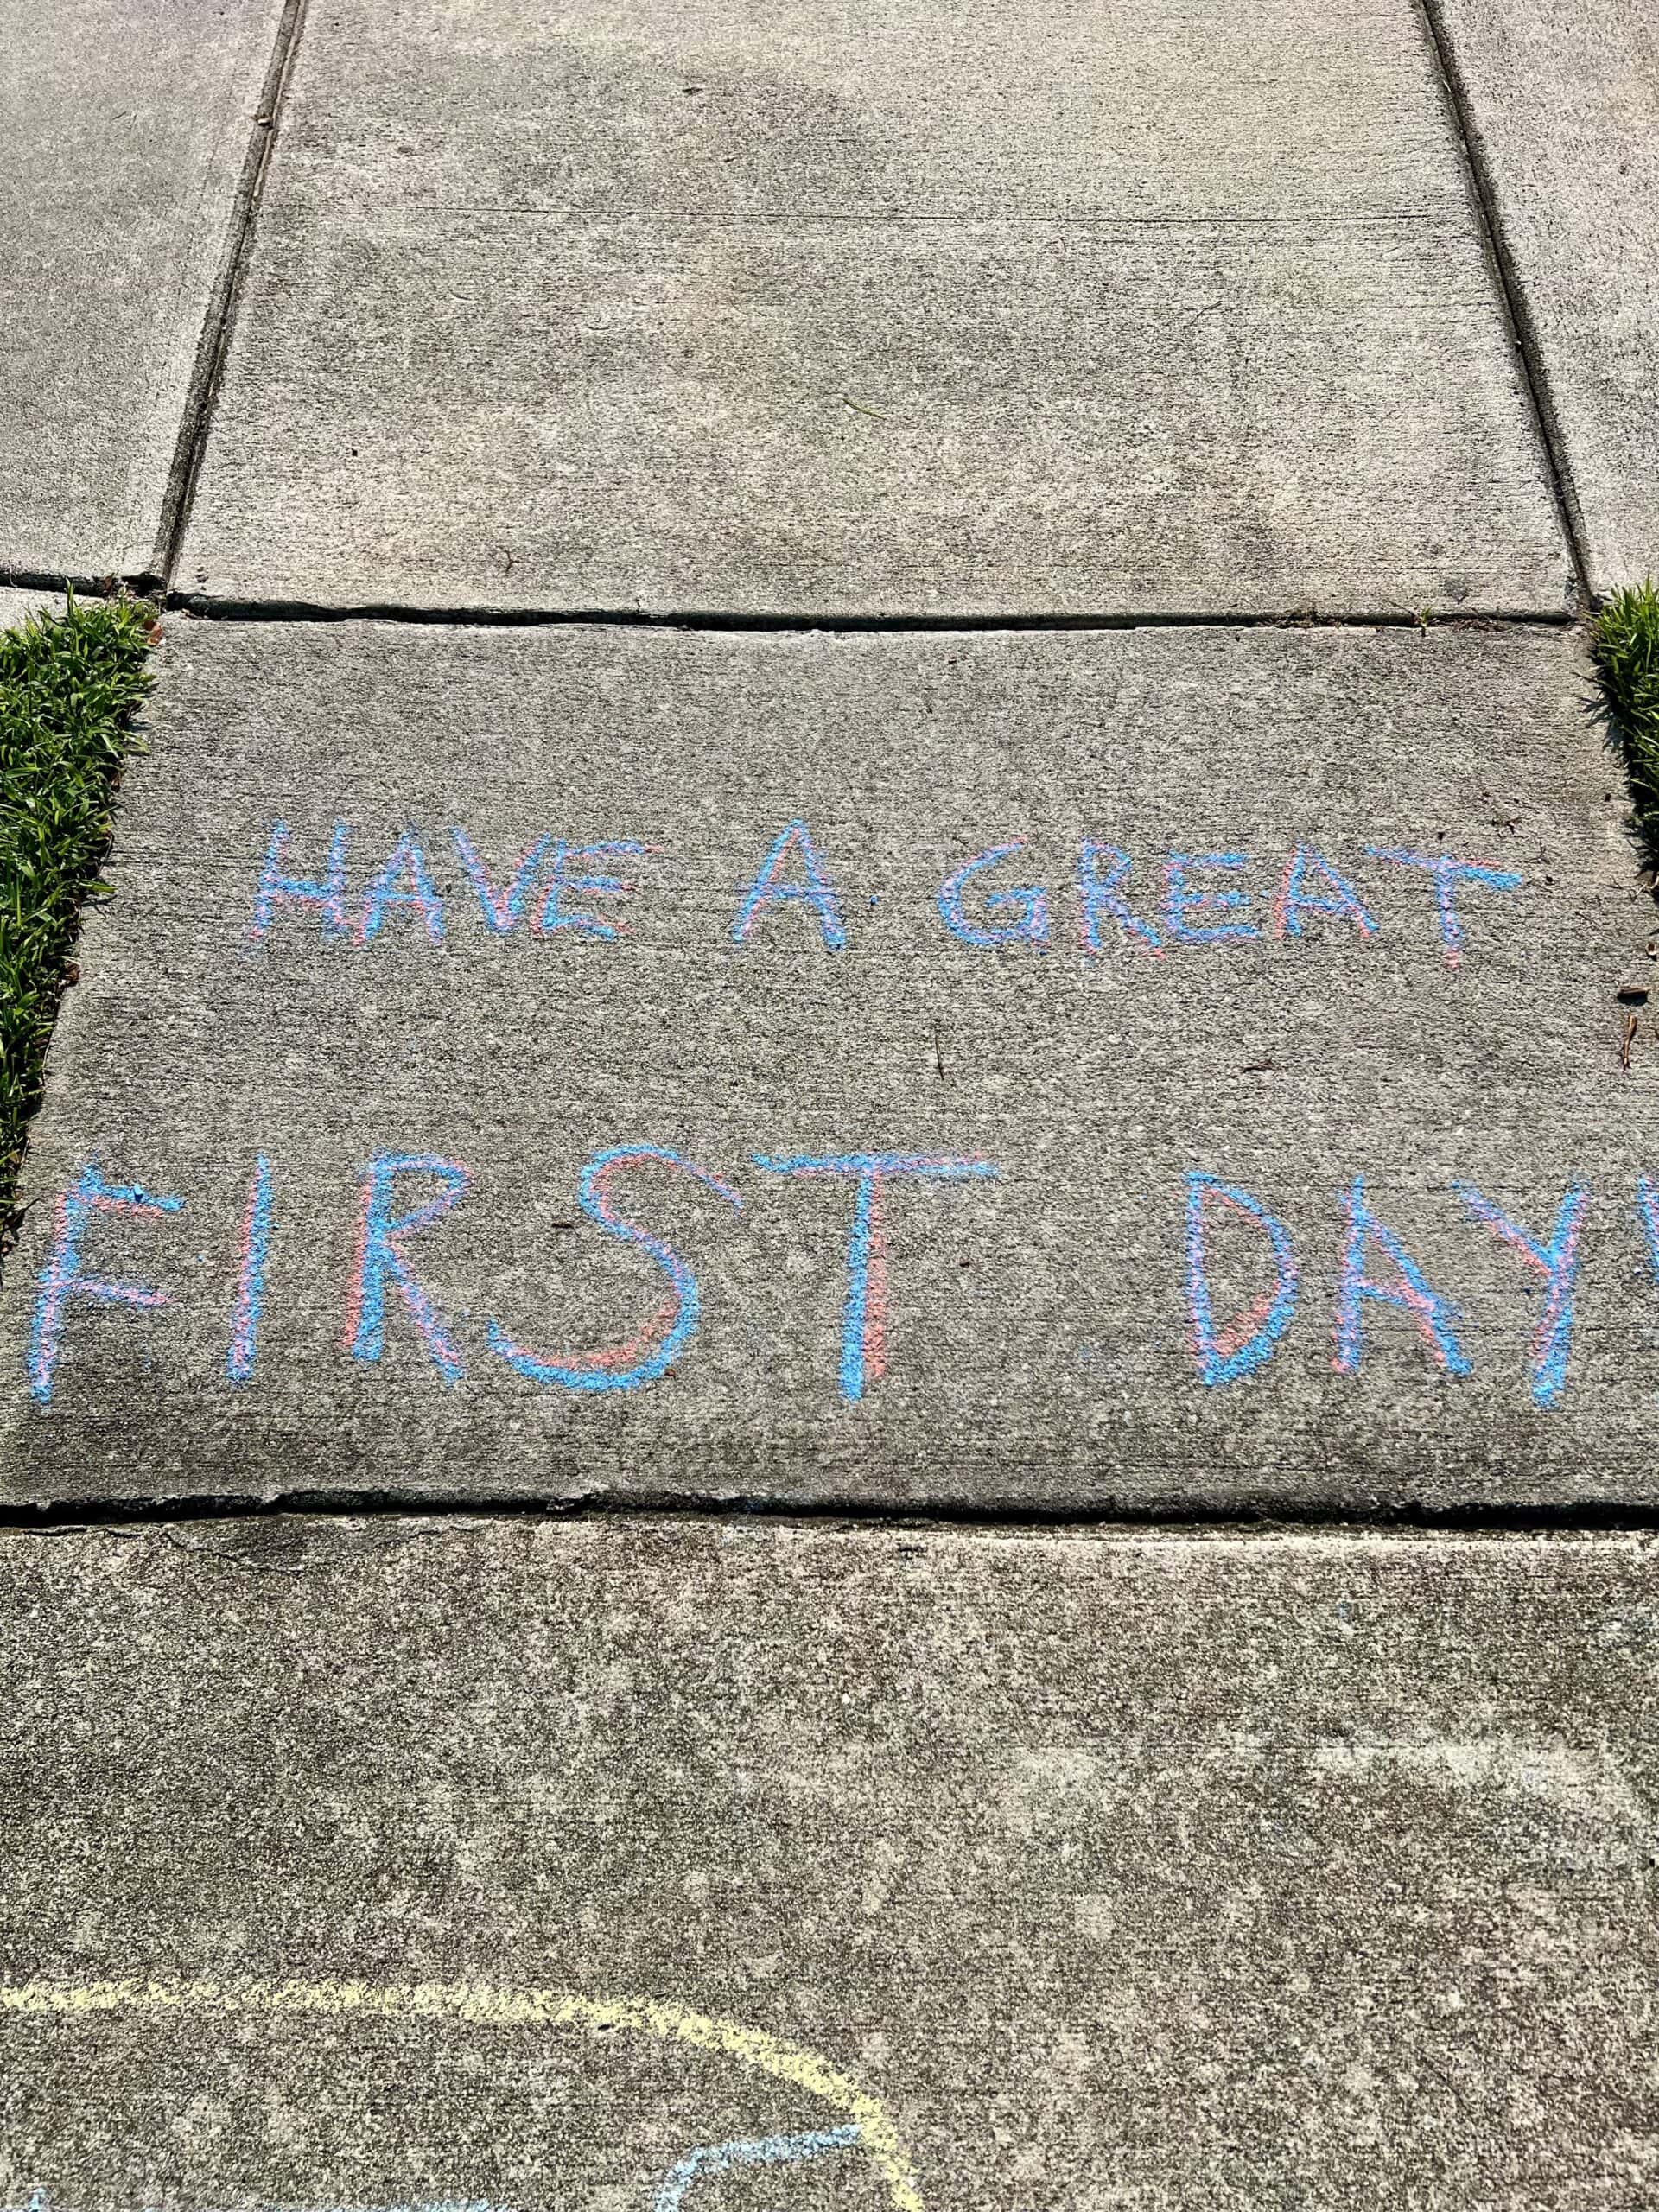 HAVE A GREAT
FIRST DAY!